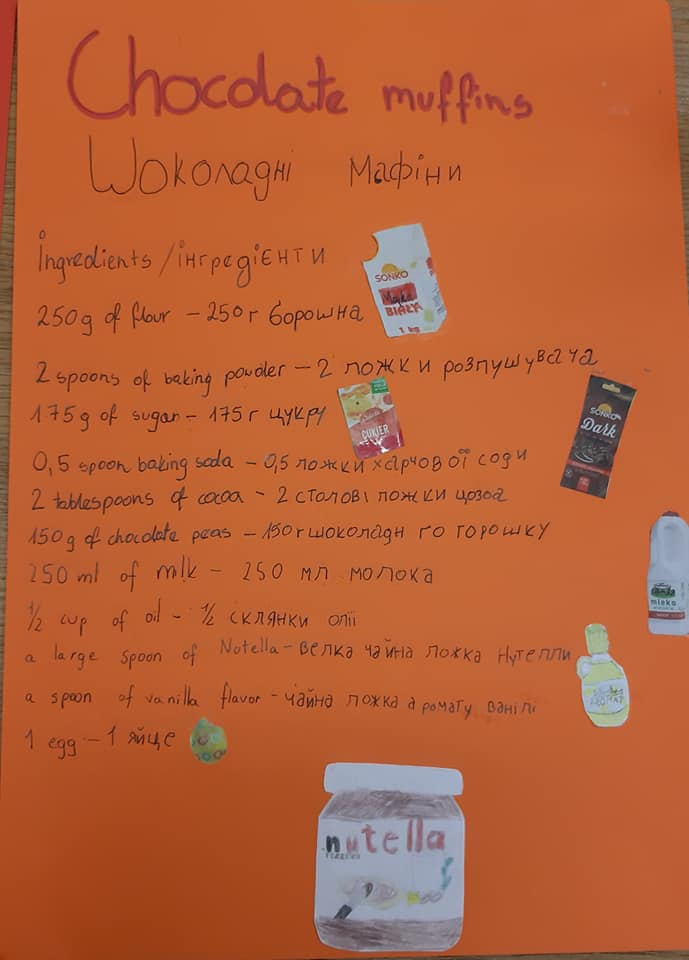 Chocolate muffins
Шоколадні Мафіни
Ingredients/інгредієнти
SONKO
Mąka
BIAŁY
1 kg
250g of flour – 250 г борошна
2 spoons of baking powder – 2 ложки розпушувача
175g of sugar – 175 г цукру
CUKIER
SONKO
Dark
0,5 spoon baking soda – 0,5 ложки харчової соди
2 tablespoons of cocoa – 2 столові ложки цозоа
150g of chocolate peas – 150г шоколадн го горошку
250 ml of milk – 250 мл молока
mleko
1/2 cup of oil – 1/2 склянки олії
a large spoon of Nutella – велка чайна ложка Нутелли
a spoon of vanilla flavor – чайна ложка аромату ванілі
1 egg – 1 яйце
nutella